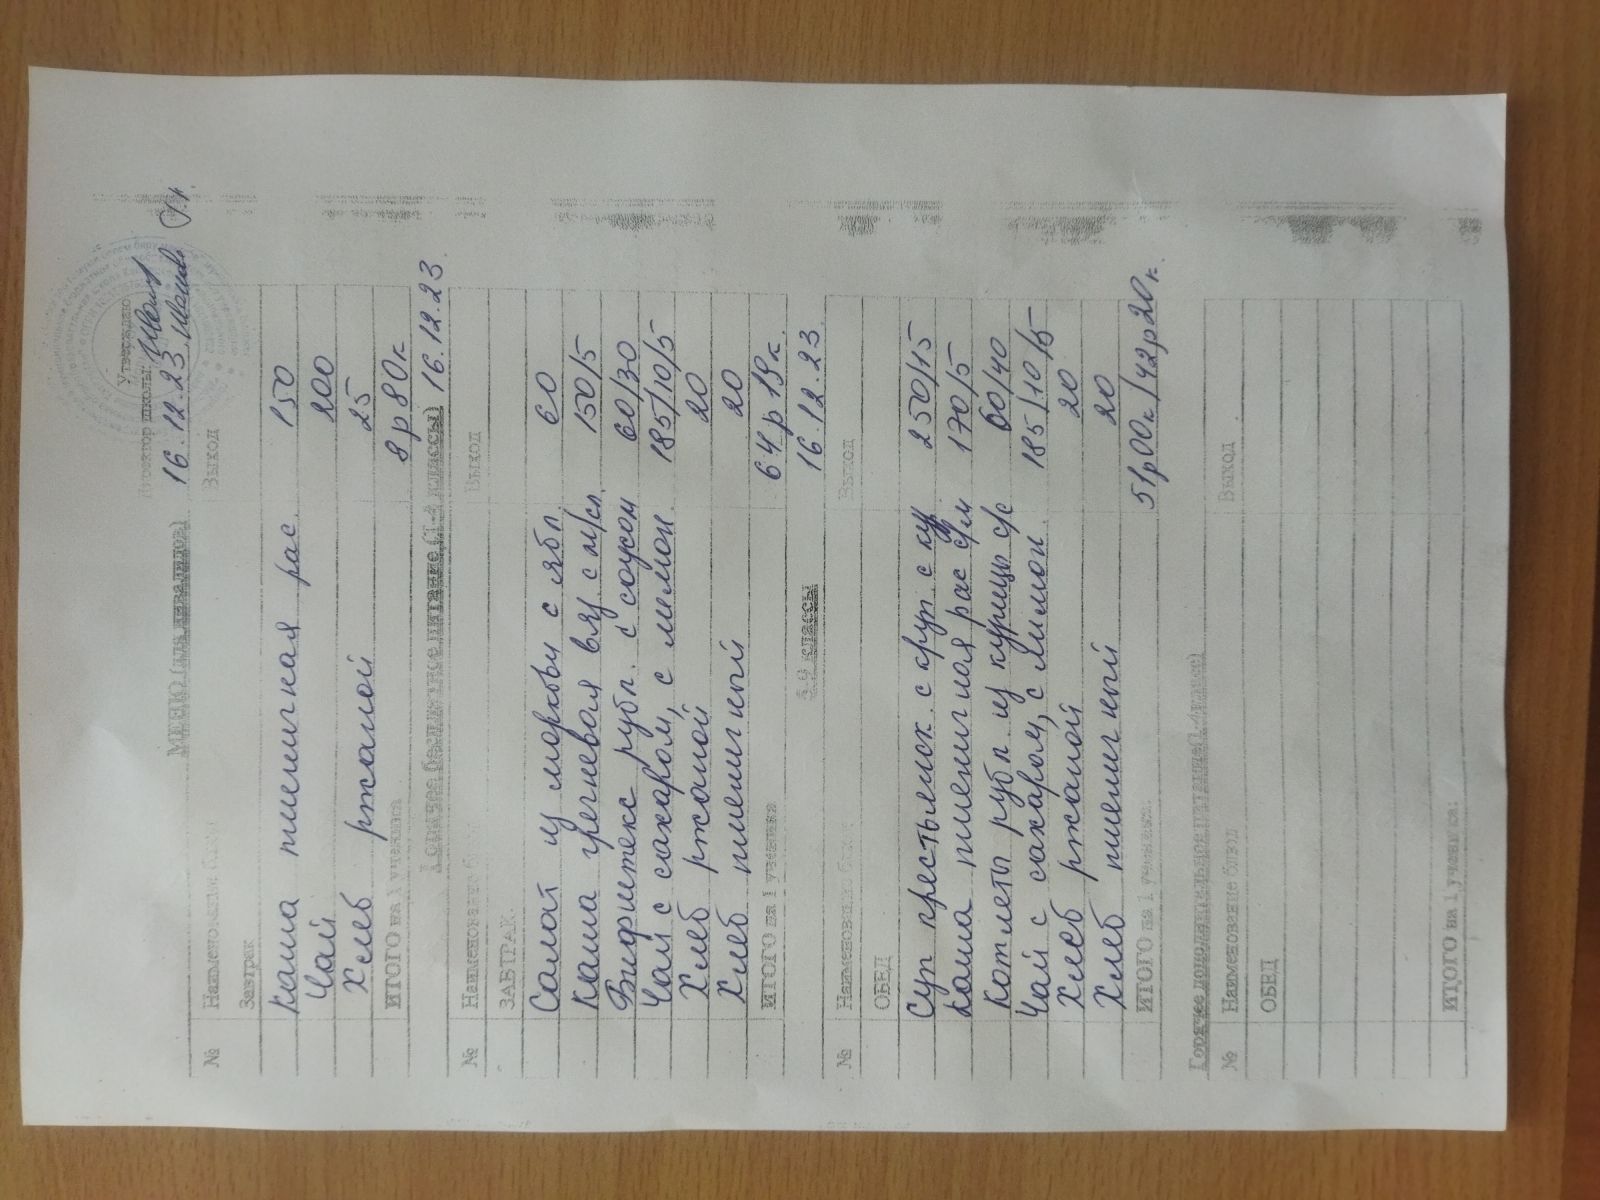 Утверждаю
Директор школы:
МЕНЮ (для инвалидов) 16.12.23
№ Наименование блюд Выход
Завтрак
Каша пшеничная рас. 150
Чай 200
Хлеб ржаной 25
ИТОГО на 1 ученика 8р 80к
Горячее бесплатное питание (1-4 классы) 16.12.23
№ Наименование блюд Выход
ЗАВТРАК
Салат из моркови с ябл. 60
Каша гречневая вяз с м/сл. 150/5
Бифштекс рубл. с соусом 60/30
Чай с сахаром, с лимон. 185/10/5
Хлеб ржаной 20
Хлеб пшеничный 20
ИТОГО на 1 ученика 64р 19к.
5-9 классы 16.12.23
№ Наименование блюд Выход
ОБЕД
Суп крестьянск. с круп. с кур 250/15
Каша пшеничная рас с/м 170/5
Котлеты рубл из курицы с/с 60/40
Чай с сахаром, с лимон. 185/10/5
Хлеб ржаной 20
Хлеб пшеничный 20
ИТОГО на 1 ученика. 51р00к/42р20к.
Горячее дополнительное питание(1-4класс)
№ Наименование блюд Выход
ОБЕД
ИТОГО на 1 ученика: